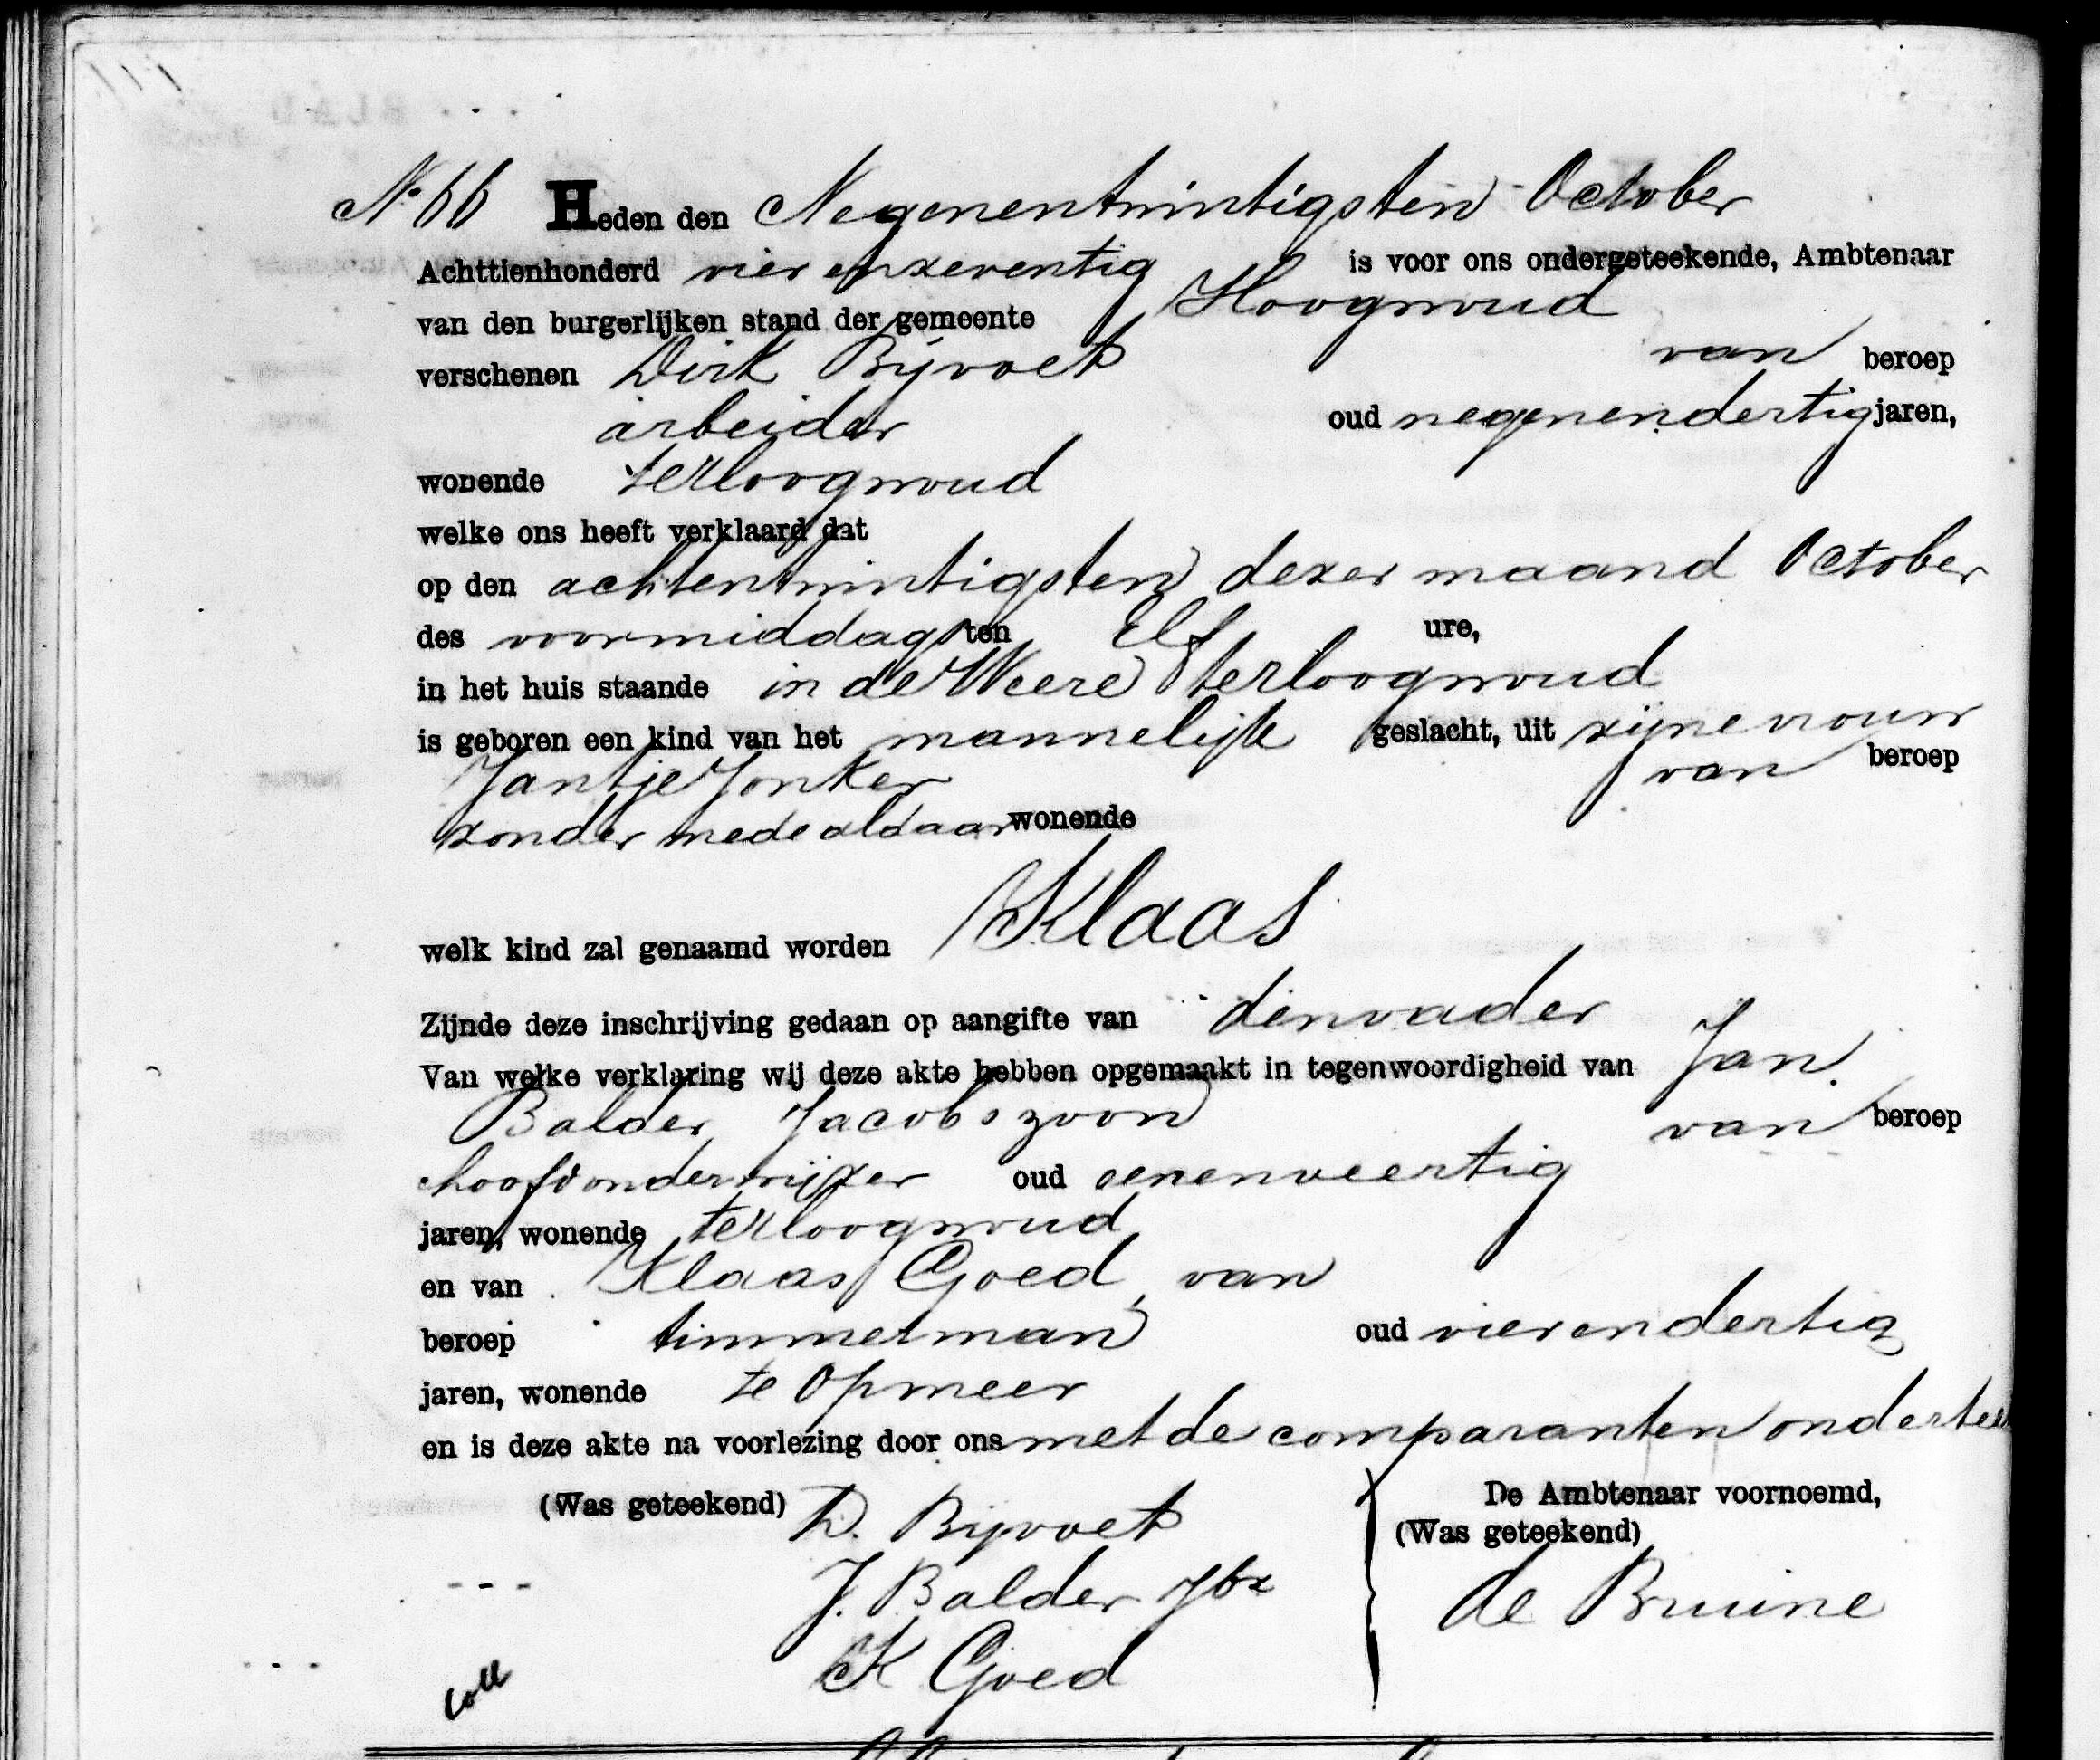 No 66 Heden den Negenentwintigsten October
Achttienhonderd vier en zeventig is voor ons ondergeteekende, Ambtenaar
van den burgerlijken stand der gemeente Hoogwoud
verschenen Dirk Bijvoet van beroep
arbeider oud negenendertig jaren,
wonende te Hoogwoud
welke ons heeft verklaard dat
op den achtentwintigsten dezer maand October
des voormiddags ten Elf ure,
in het huis staande in de Weere te Hoogwoud
is geboren een kind van het mannelijk geslacht, uit zijne vrouw
Jantje Jonker van beroep
zonder mede aldaar wonende
welk kind zal genaamd worden Klaas
Zijnde deze inschrijving gedaan op aangifte van den vader
Van welke verklaring wij deze akte hebben opgemaakt in tegenwoordigheid van Jan
Balder Jacobszoon van beroep
hoofdonderwijzer oud eenenveertig
jaren, wonende te Hoogwoud
en van Klaas Goed, van
beroep timmerman oud vierendertig
jaren, wonende te Opmeer
en is deze akte na voorlezing door ons met de comparanten ondertee
(Was geteekend) D. Bijvoet De Ambtenaar voornoemd,
(Was geteekend)
J. Balder Jbz de Bruine
K Goed
Coll